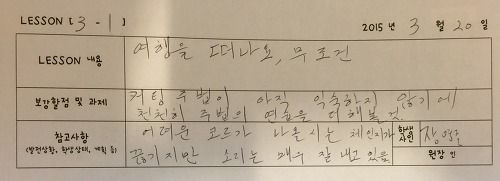 LESSON [ 3 - 1 ] 2015 년 3 월 20 일
LESSON 내용 여행을 떠나요, 무조건
보강할점 및 과제 커팅 주법이 아직 익숙하지 않기에
천천히 주법의 연습을 더해볼 것.
참고사항 어려운 코드가 나올 시는 체인지가 학생 사인
(발전상황, 학생상태, 계획 등) 끊기지만 소리는 매우 잘 내고 있음 원장 인